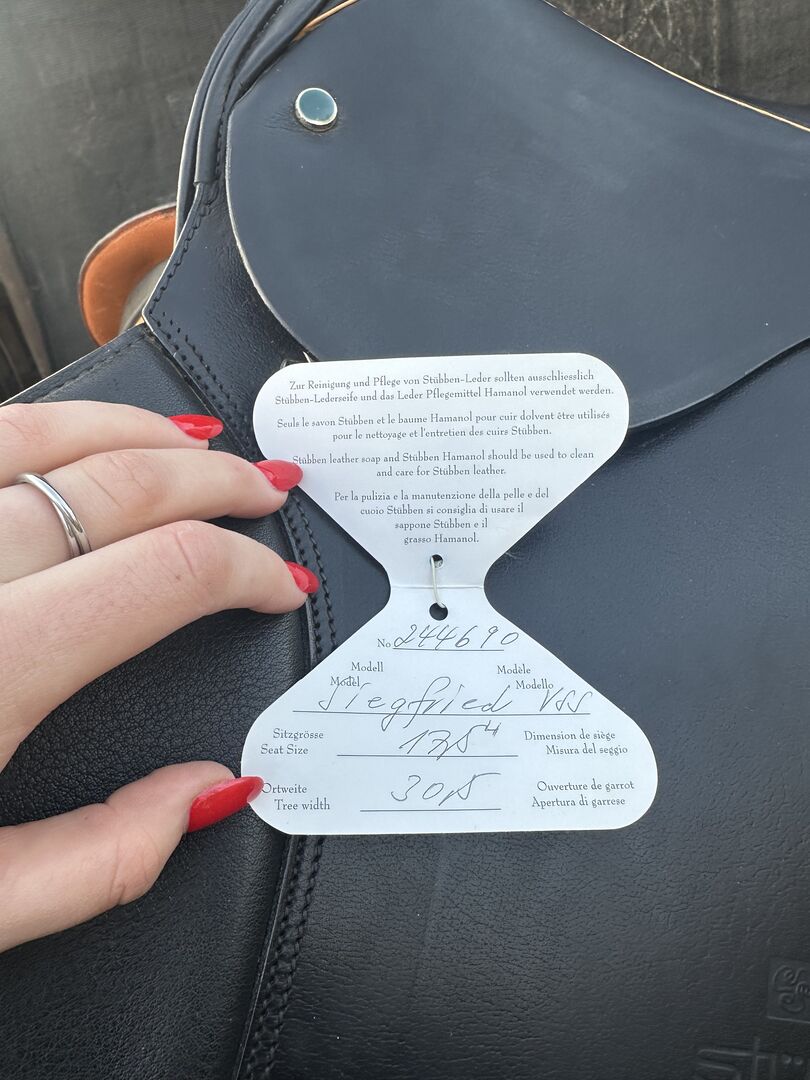 Zur Reinigung und Pflege von Stübben-Leder sollten ausschliesslich
Stübben-Lederseife und das Leder Pflegemittel Hamanol verwendet werden.
Seuls le savon Stübben et le baume Hamanol pour cuir doivent être utilisés
pour le nettoyage et l'entretien des cuirs Stübben.
Stübben leather soap and Stübben Hamanol should be used to clean
and care for Stübben leather.
Per la pulizia e la manutenzione della pelle e del
cuoio Stübben si consiglia di usare il
sappone Stübben e il
grasso Hamanol.
No 244690
Modell Modèle
Model Modello
Siegfried VSS
Sitzgrösse 17,5" Dimension de siège
Seat Size Misura del seggio
Ortweite 30,5 Ouverture de garrot
Tree width Apertura di garrese